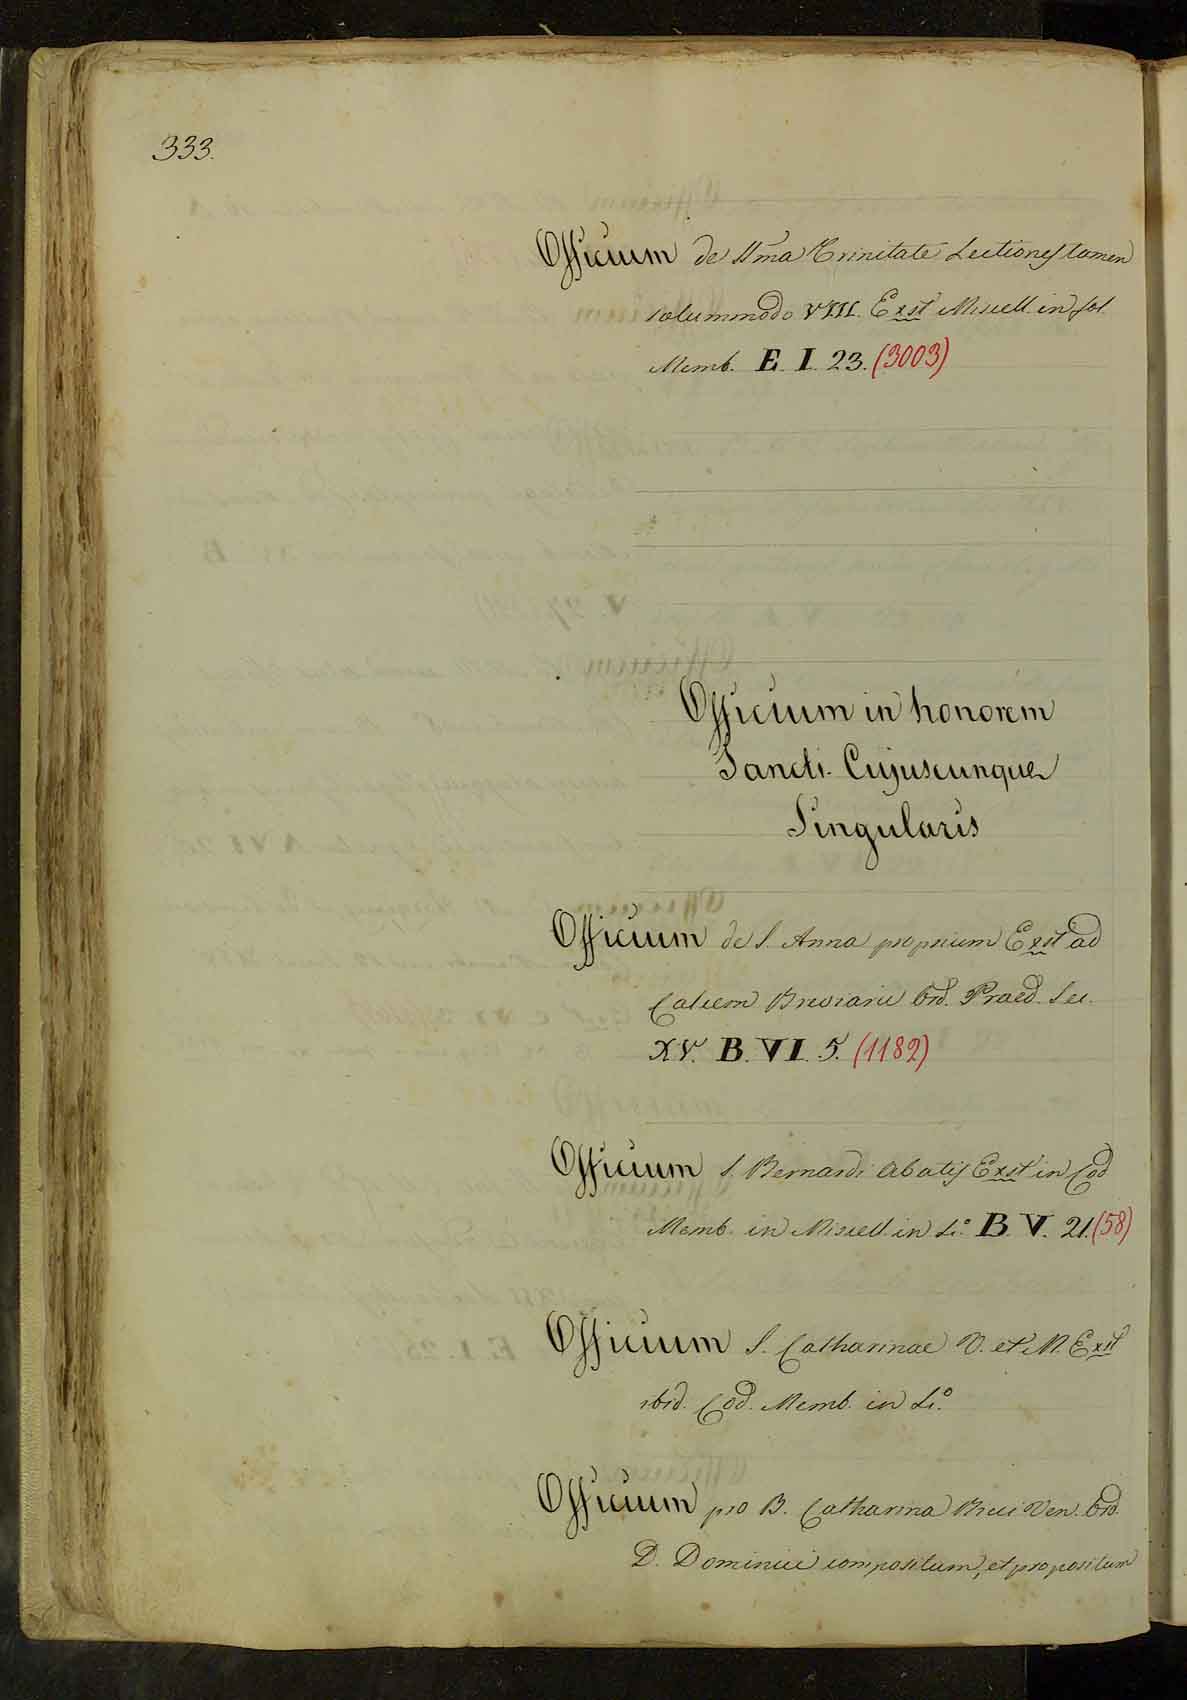 333.
Officium de SSma Trinitate Lectiones tamen
solummodo VIII. Exst Miscell. in fol.
Memb. E. I. 23. (3003)
Officium in honorem
Sancti Cujuscunque
Singularis
Officium de S. Anna proprium Exst ad
Calcem Breviarii Ord. Praed. Sec.
XV. B. VI. 5. (1182)
Officium S. Bernardi Abatis Exst in Cod
Memb. in Miscell. in 4.º B. V. 21. (58)
Officium S. Catharinae V. et M. Exst
ibid. Cod. Memb. in 4.º
Officium pro B. Catharina Ven. Ord.
D. Dominici compositum, et propositum